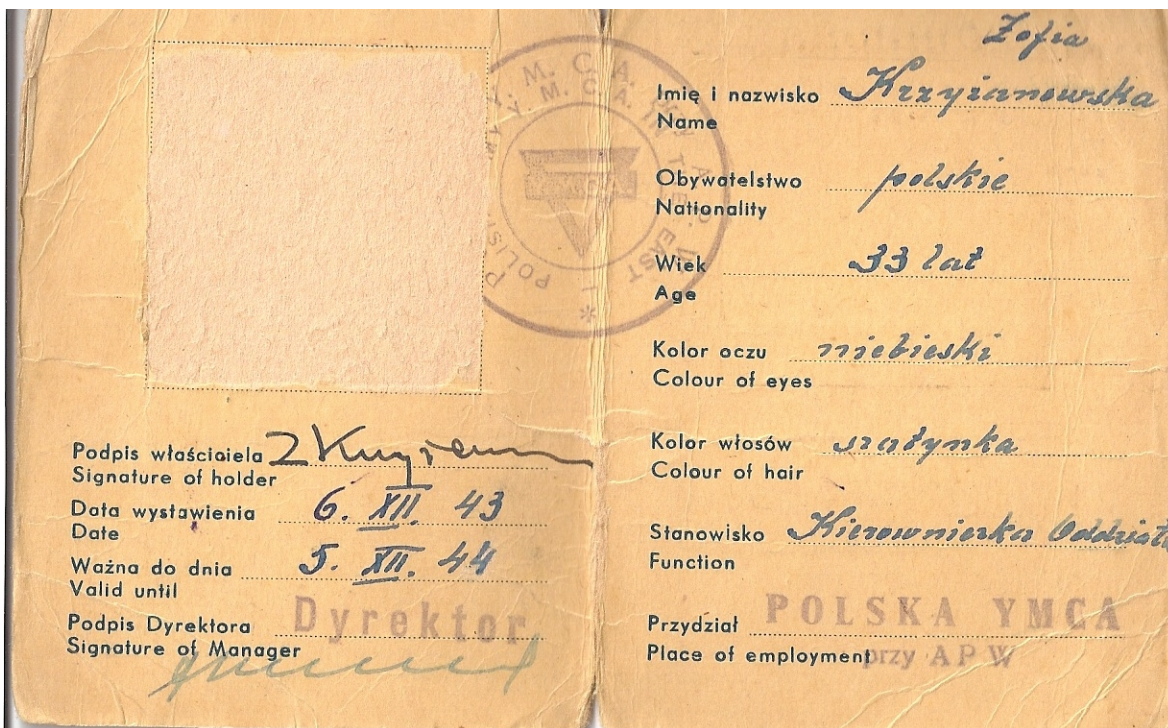 POLISH Y.M.C.A. IN
Y.M.C.A.
Podpis właściciela Z Krzyżan
Signature of holder
Data wystawienia 6. XII. 43
Date
Ważna do dnia 5. XII. 44
Valid until
Podpis Dyrektora Dyrektor
Signature of Manager
Zofia
Imię i nazwisko Krzyżanowska
Name
Obywatelstwo polskie
Nationality
Wiek 33 lat
Age
Kolor oczu niebieski
Colour of eyes
Kolor włosów szatynka
Colour of hair
Stanowisko Kierowniczka Oddziału
Function
Przydział POLSKA YMCA
Place of employment przy A P W